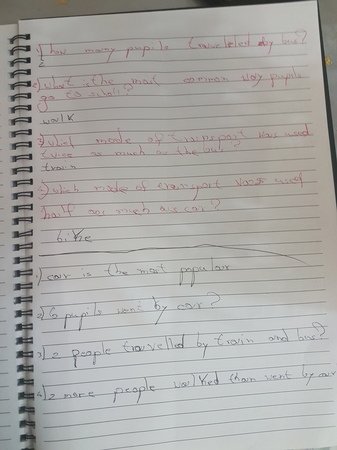 1) how many pupils traveled by bus?
2
2) what is the most common way pupils
go to school?
walk
3) which mode of transport was used
twice as much as the bus?
train
4) which mode of transport was used
half as much as car?
bike
1) car is the most popular
2) 6 pupils went by car?
3) 2 people travelled by train and bus?
4) 2 more people walked than went by car